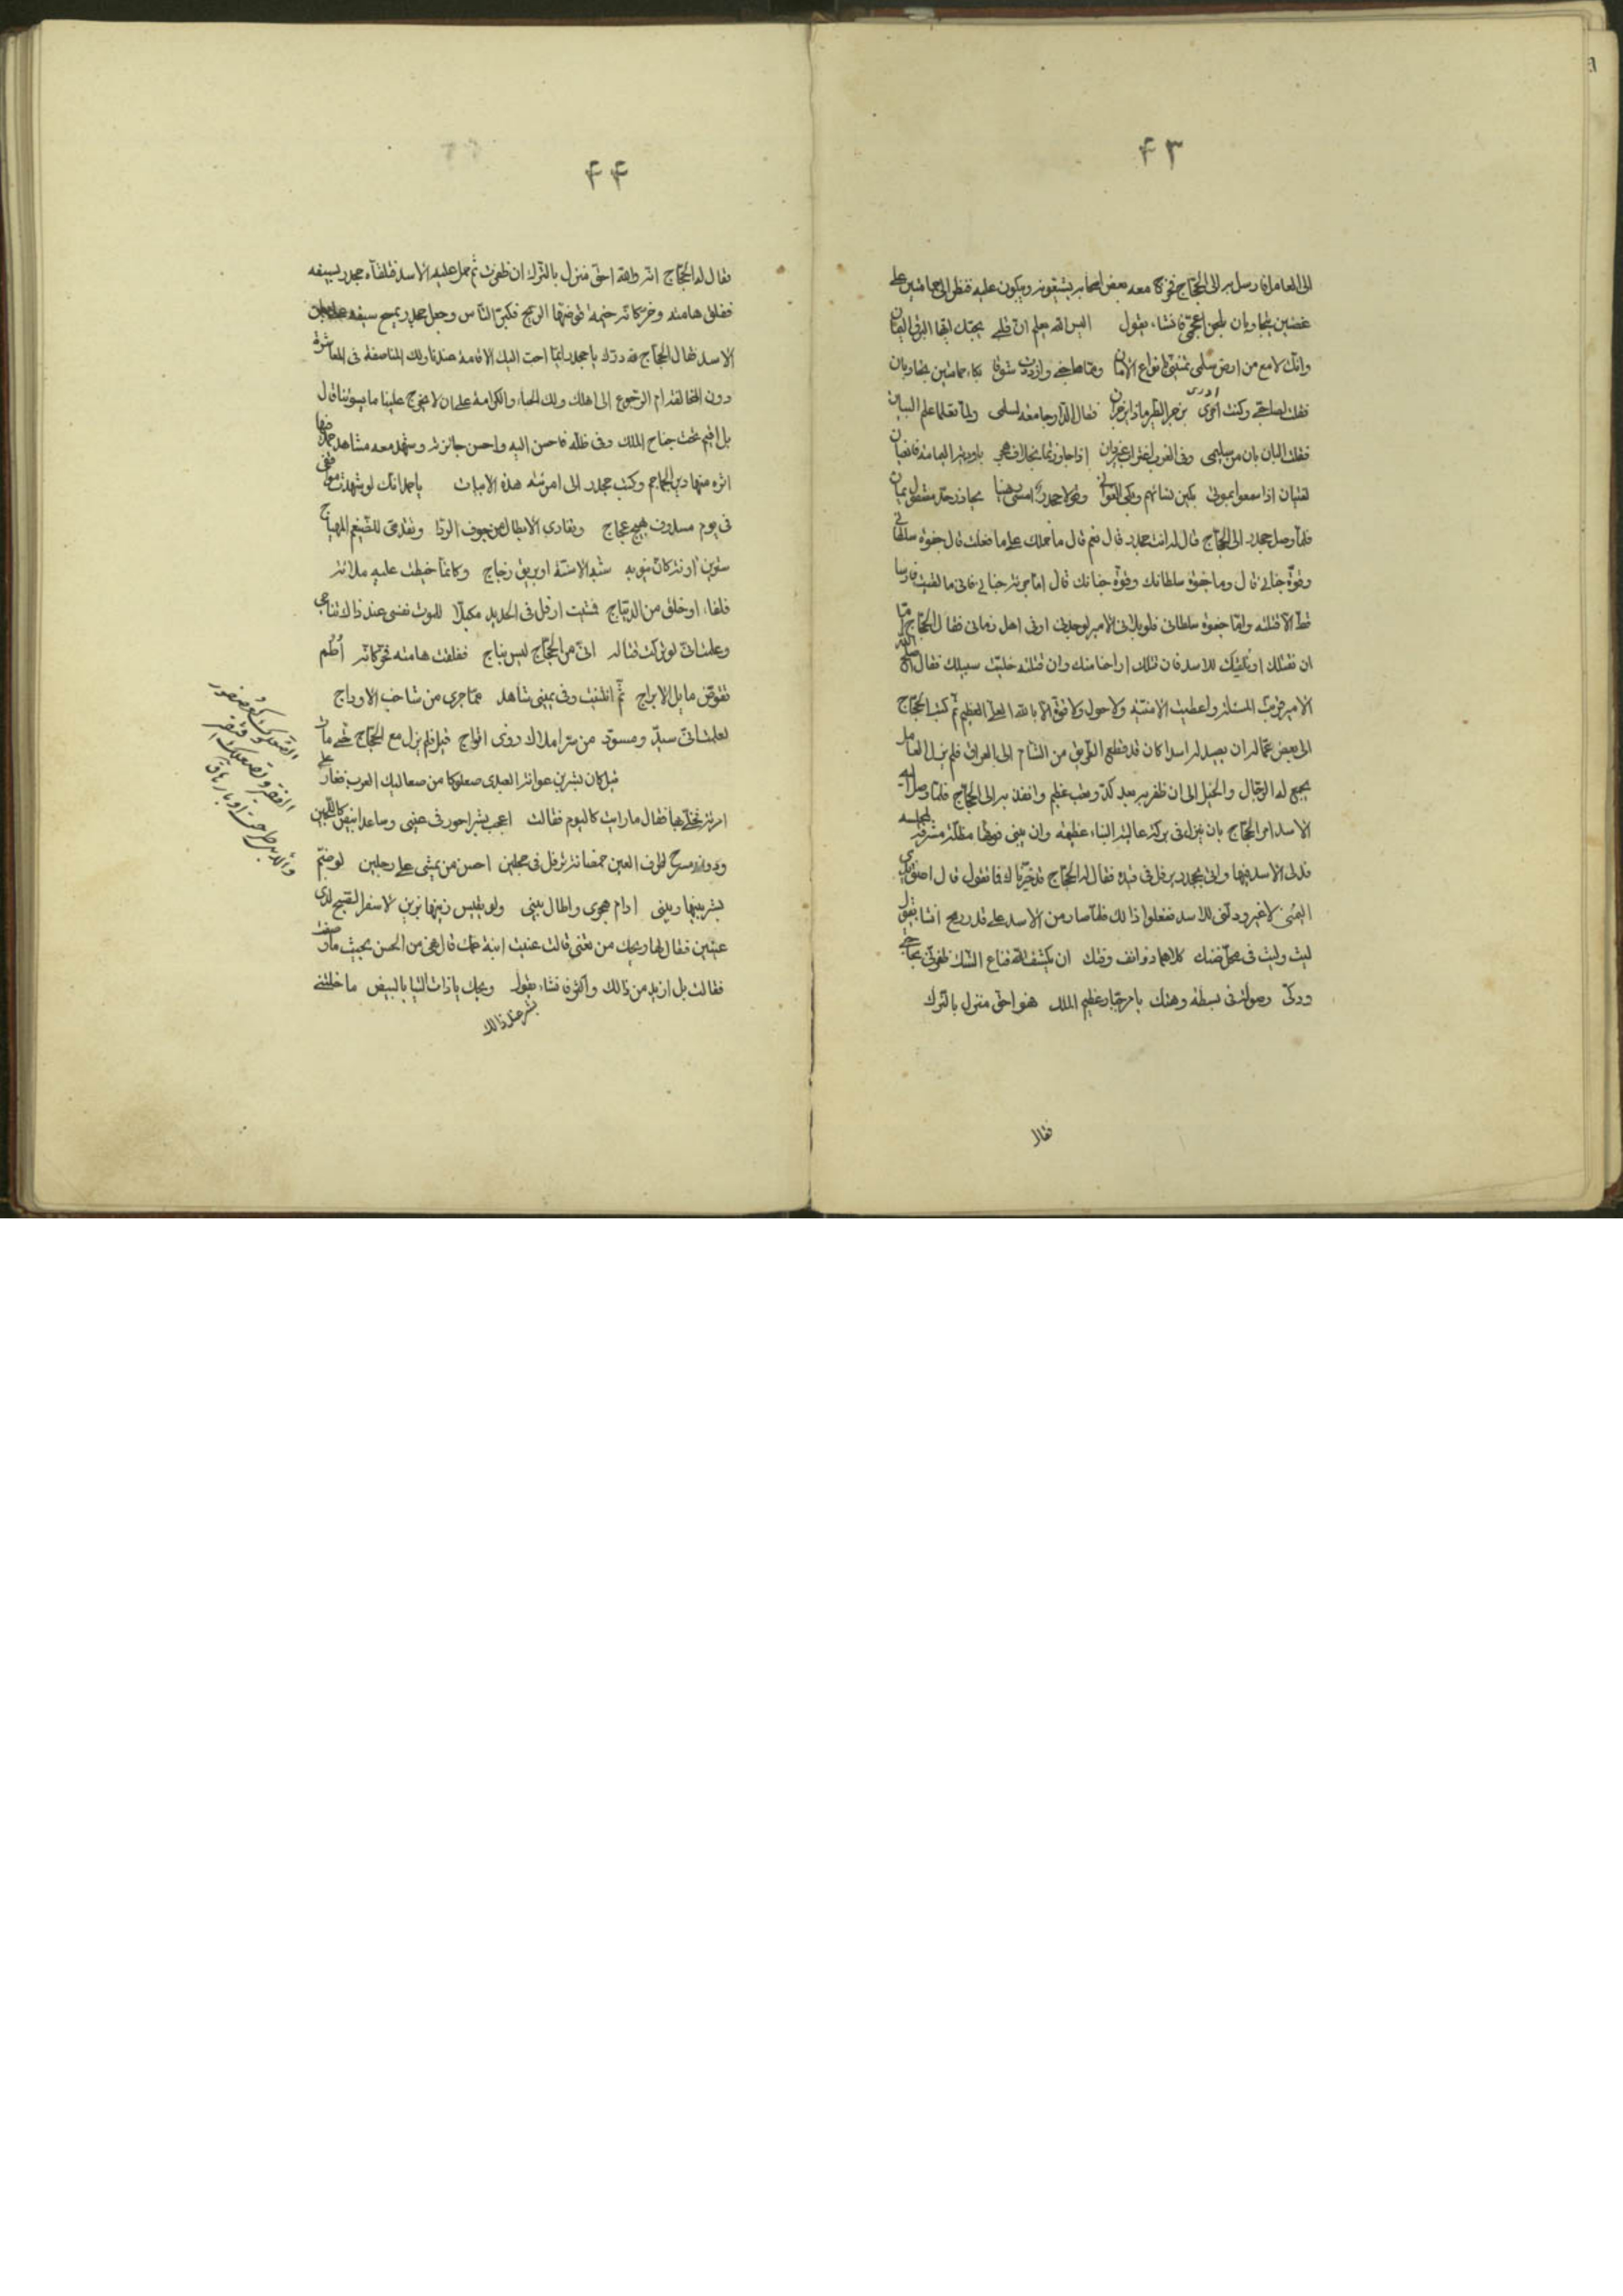 ۴۳
الى العامل فارسل به الى الحجاج فخرجا معه بعض اصحابه يشيعونه ويبكون عليه فنظر الى حمامتين على
غصنين يتجاوبان بلحن اعجمي فانشاء يقول اليس الله يعلم ان قلبي يحبك ايها البرق اليمان
وانك لامع من ارض سلمى وازددت شوقا بكاء حمامتين تجاوبان
فقلت لصاحبي وكنت احزى بزجر الطير ماذا تزجران فقال الدار جامعة لسلمى
ادرى
فقلت البان بان من سليمى وفى الغرب اغتراب غير دان اذا جاوزتما
لفتيان اذا سمعوا بموتى بكين نسائهم وبكى الغوانى وقولا جحدر امسى رهينا يحاذر حد مصقول يمان
فلما وصل جحدر الى الحجاج قال له انت جحدر قال نعم قال ما حملك على ما فعلت قال جفوة سلطانى
وقوة جنانى قال وما جفوة سلطانك وقوة جنانك قال اما قوة جنانى فانى ما لقيت فارسا
قط الا قتلته واما جفوة سلطانى فلو بلانى الامير لوجدنى اوفى اهل زمانى فقال الحجاج انا
ان نقتلك او نلقيك للاسد فان قتلك اراحنا منك وان قتلته خليت سبيلك فقال اصلح الله
الامير قربت المسئلة واعطيت الامنية ولا حول ولا قوة الا بالله العلى العظيم ثم كتب الحجاج
الى بعض عماله ان يصيد له اسدا كان قد قطع الطريق من الشام الى العراق فلم يزل العامل
يجمع له الرجال والخيل الى ان ظفر به بعد كد وتعب عظيم وانفذ به الى الحجاج فلما وصل اليه
الاسد امر الحجاج بان ينزل فى بركة عالية البناء عظيمة وان يبنى فوقها مظلة مشرفة لمجلسه
فدلى الاسد فيها واتى بجحدر يرفل فى قيده فقال له الحجاج قد خيرناك فما تقول قال اطلق يدى
اليمنى لا غير ودلنى للاسد ففعلوا ذالك فلما صار من الاسد على قدر رمح انشا يقول
ليث وليث فى محل ضنك كلاهما ذو انف وفتك ان يكشف الله قناع الشك
ودكى وصولة فى بسطة وهتك يا مرحبا بعظيم الملك فهو احق منزل بالترك
فقال
۴۴
فقال له الحجاج انه والله احق منزل بالترك ان ظفرت ثم حمل عليه الاسد فتلقاه جحدر بسيفه
ففلق هامته وخر كانه خيمة قوضتها الريح فكبر الناس وجعل جحدر يمسح سيفه
الاسد فقال الحجاج لله درك يا جحدر ايما احب اليك الاقامة عندنا ولك المناصفة فى المعاشرة
دون المخالفة ام الرجوع الى اهلك ولك الحباء والكرامة على ان لا تخرج علينا ما يسوئنا قال
بل اقيم تحت جناح الملك وفى ظله فاحسن اليه واحسن جائزته وشهد معه مشاهد حمد فيها
اثره منها دير الجماجم وكتب جحدر الى امرئته هذه الابيات يا جمل انك لو شهدت موقفى
فى يوم مسدوف يهيج عجاج وتفادى الابطال من خوف الردا وتقدمى للضيغم المهياج
شثن براثنه كان نيوبه شبه الاسنة او بريق زجاج وكانما خيطت عليه ملائة
فلقاء او خلق من الديباج فمشيت ارفل فى الحديد مكبلا للموت نفسى عند ذاك تناجى
وعلمت انى لو تركت قتاله انى من الحجاج ليس بناج ففلقت هامته فخر كانه اطم
تقوض مايل الابراج ثم انثنيت وفى يمينى شاهد مما جرى من شاخب الاوداج
لعلمت انى سيد ومسود من سر املاك ذوى افواج قيل فلم يزل مع الحجاج حتى مات
قيل كان بشر بن عوانه العبدى صعلوكا من صعاليك العرب فغار على
امرئة تحلى بها فقال ما رايت كاليوم فقالت اعجب بشرا حور فى عينى وساعد ابيض كاللجين
ودونه مسرح طرف العين خمصانة ترفل فى حجلين احسن من يمشى على رجلين لو ضم
بشر بينها وبينى ادام هجرى واطال بينى ولو يقيس زينها بزينى لاسفر الصبح لذى
عينين فقال لها ويحك من تعنى قالت عنيت ابنة عمك قال اهى من الحسن بحيث ما وصفت
فقالت بل ازيد من ذالك واكثر فانشاء يقول ويحك يا ذات الثنايا البيض ما خلتنى
بشر عند ذالك
الصعلوك كعصفور
الفقير وتصعلك افتقر